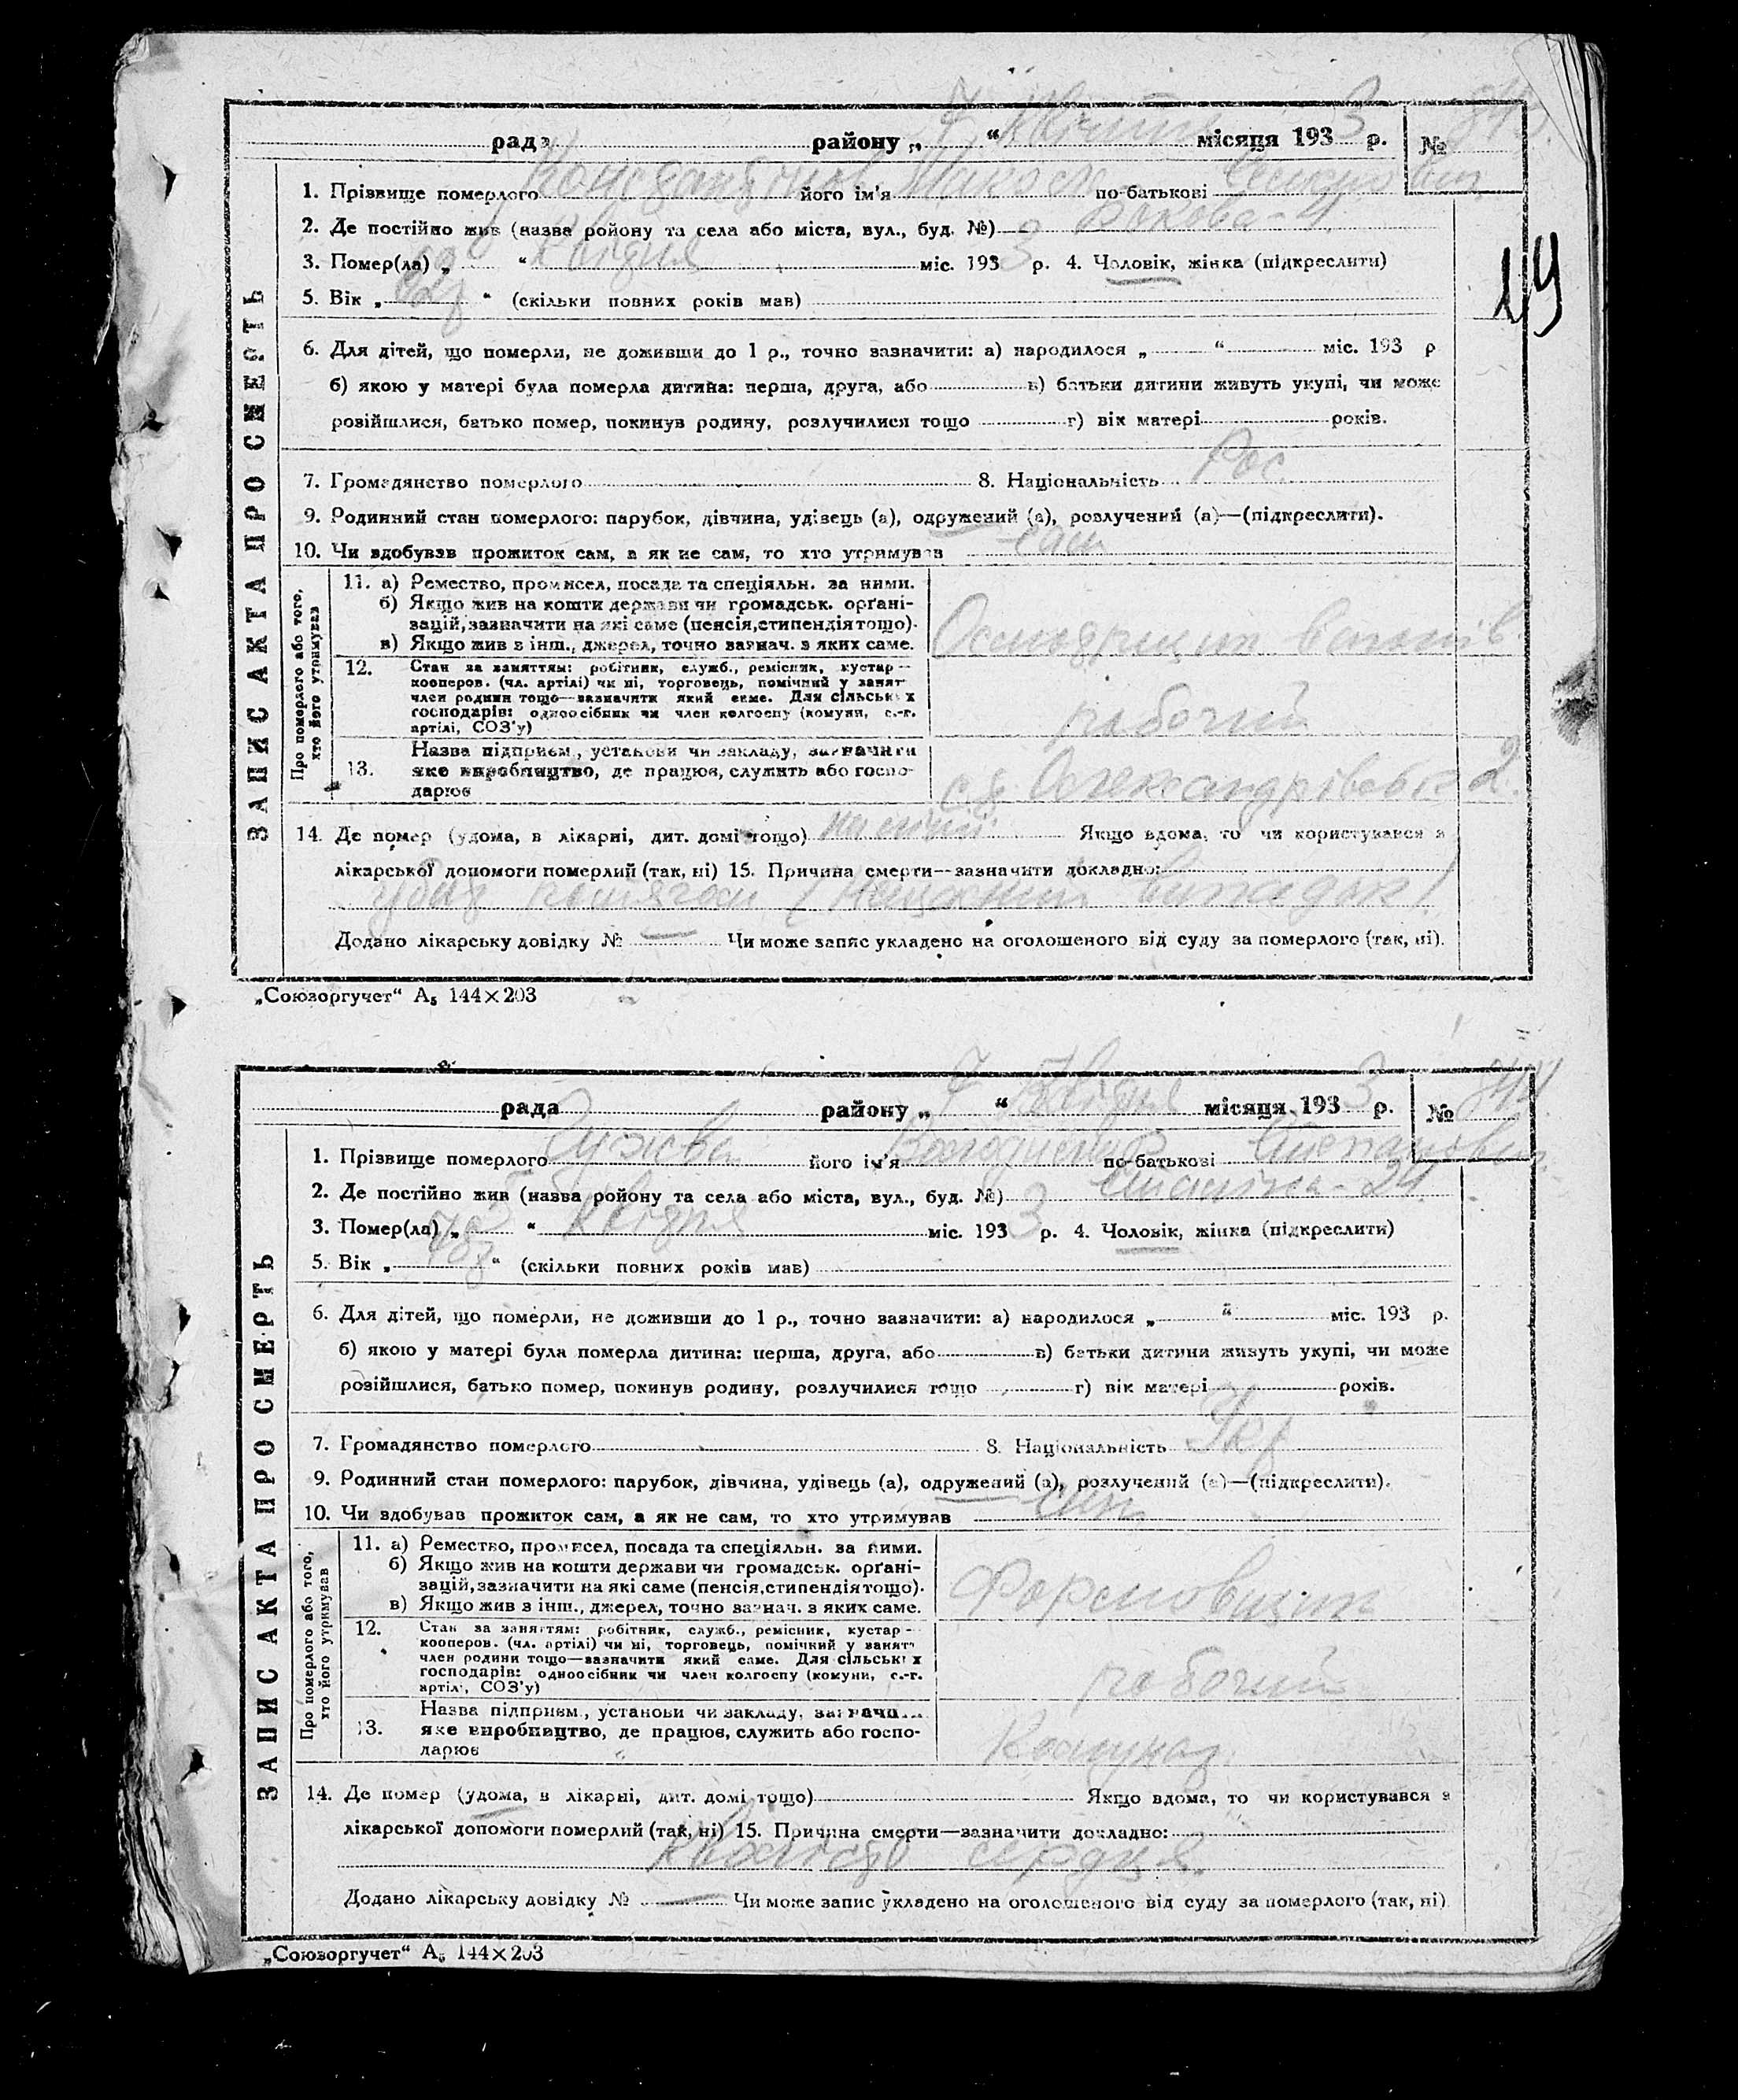 рада району „ 7 “ Квітня місяця 193 3 р. № 843
1. Прізвище померлого Константінов його ім'я Микола по-батькові
2. Де постійно жив (назва ройону та села або міста, вул., буд. №)
3. Помер(ла) „ “ Квітня міс. 193 3 р. 4. Чоловік, жінка (підкреслити)
5. Вік „ “ (скільки повних років мав)
6. Для дітей, що померли, не доживши до 1 р., точно зазначити: а) народилося „ “ міс. 193 р
б) якою у матері була померла дитина: перша, друга, або в) батьки дитини живуть укупі, чи може
розійшлися, батько помер, покинув родину, розлучилися тощо г) вік матері років.
7. Громадянство померлого 8. Національність Рос
9. Родинний стан померлого: парубок, дівчина, удівець (а), одружений (а), розлучений (а)—(підкреслити).
10. Чи здобував прожиток сам, а як не сам, то хто утримував сам
ЗАПИС АКТА ПРО СМЕРТЬ
Про померлого або того, хто його утримував
11. а) Ремество, промисел, посада та спеціяльн. за ними.
б) Якщо жив на кошти держави чи громадськ. орґані-
зацій, зазначити на які саме (пенсія, стипендія тощо).
в) Якщо жив з інш., джерел, точно зазнач. з яких саме.
Осмотрщик вагонів
12. Стан за заняттям: робітник, служб., ремісник, кустар—
кооперов. (чл. артілі) чи ні, торговець, помічний у занят
член родини тощо—зазначити який саме. Для сільських
господарів: одноосібник чи член колгоспу (комуни, с.-г.
артілі, СОЗ'у)
рабочий
13. Назва підприєм., установи чи закладу, зазначити
яке виробництво, де працює, служить або госпо-
дарює
Олександрівськ 2.
14. Де помер (удома, в лікарні, дит. домі тощо) Якщо вдома, то чи користувався з
лікарської допомоги померлий (так, ні) 15. Причина смерти—зазначити докладно:
убит потягом (нещасний випадок)
Додано лікарську довідку № — Чи може запис укладено на оголошеного від суду за померлого (так, ні).
„Союзоргучет“ А₅ 144×203
19
рада району „ 7 “ Квітня місяця 193 3 р. № 844
1. Прізвище померлого Гужва його ім'я Володимир по-батькові Степанович
2. Де постійно жив (назва ройону та села або міста, вул., буд. №) Сталіна - 24
3. Помер(ла) „ “ Квітня міс. 193 3 р. 4. Чоловік, жінка (підкреслити)
5. Вік „ “ (скільки повних років мав)
6. Для дітей, що померли, не доживши до 1 р., точно зазначити: а) народилося „ “ міс. 193 р.
б) якою у матері була померла дитина: перша, друга, або в) батьки дитини живуть укупі, чи може
розійшлися, батько помер, покинув родину, розлучилися тощо г) вік матері років.
7. Громадянство померлого 8. Національність Укр
9. Родинний стан померлого: парубок, дівчина, удівець (а), одружений (а), розлучений (а)—(підкреслити).
10. Чи здобував прожиток сам, а як не сам, то хто утримував сам
ЗАПИС АКТА ПРО СМЕРТЬ
Про померлого або того, хто його утримував
11. а) Ремество, промисел, посада та спеціяльн. за ними.
б) Якщо жив на кошти держави чи громадськ. орґані-
зацій, зазначити на які саме (пенсія, стипендія тощо).
в) Якщо жив з інш., джерел, точно зазнач. з яких саме.
Формовщик
12. Стан за заняттям: робітник, служб., ремісник, кустар—
кооперов. (чл. артілі) чи ні, торговець, помічний у занят
член родини тощо—зазначити який саме. Для сільських
господарів: одноосібник чи член колгоспу (комуни, с.-г.
артілі, СОЗ'у)
рабочий
13. Назва підприєм., установи чи закладу, зазначити
яке виробництво, де працює, служить або госпо-
дарює
Комунар
14. Де помер (удома, в лікарні, дит. домі тощо) Якщо вдома, то чи користувався з
лікарської допомоги померлий (так, ні) 15. Причина смерти—зазначити докладно:
сердця.
Додано лікарську довідку № — Чи може запис укладено на оголошеного від суду за померлого (так, ні)
„Союзоргучет“ А₅ 144×203